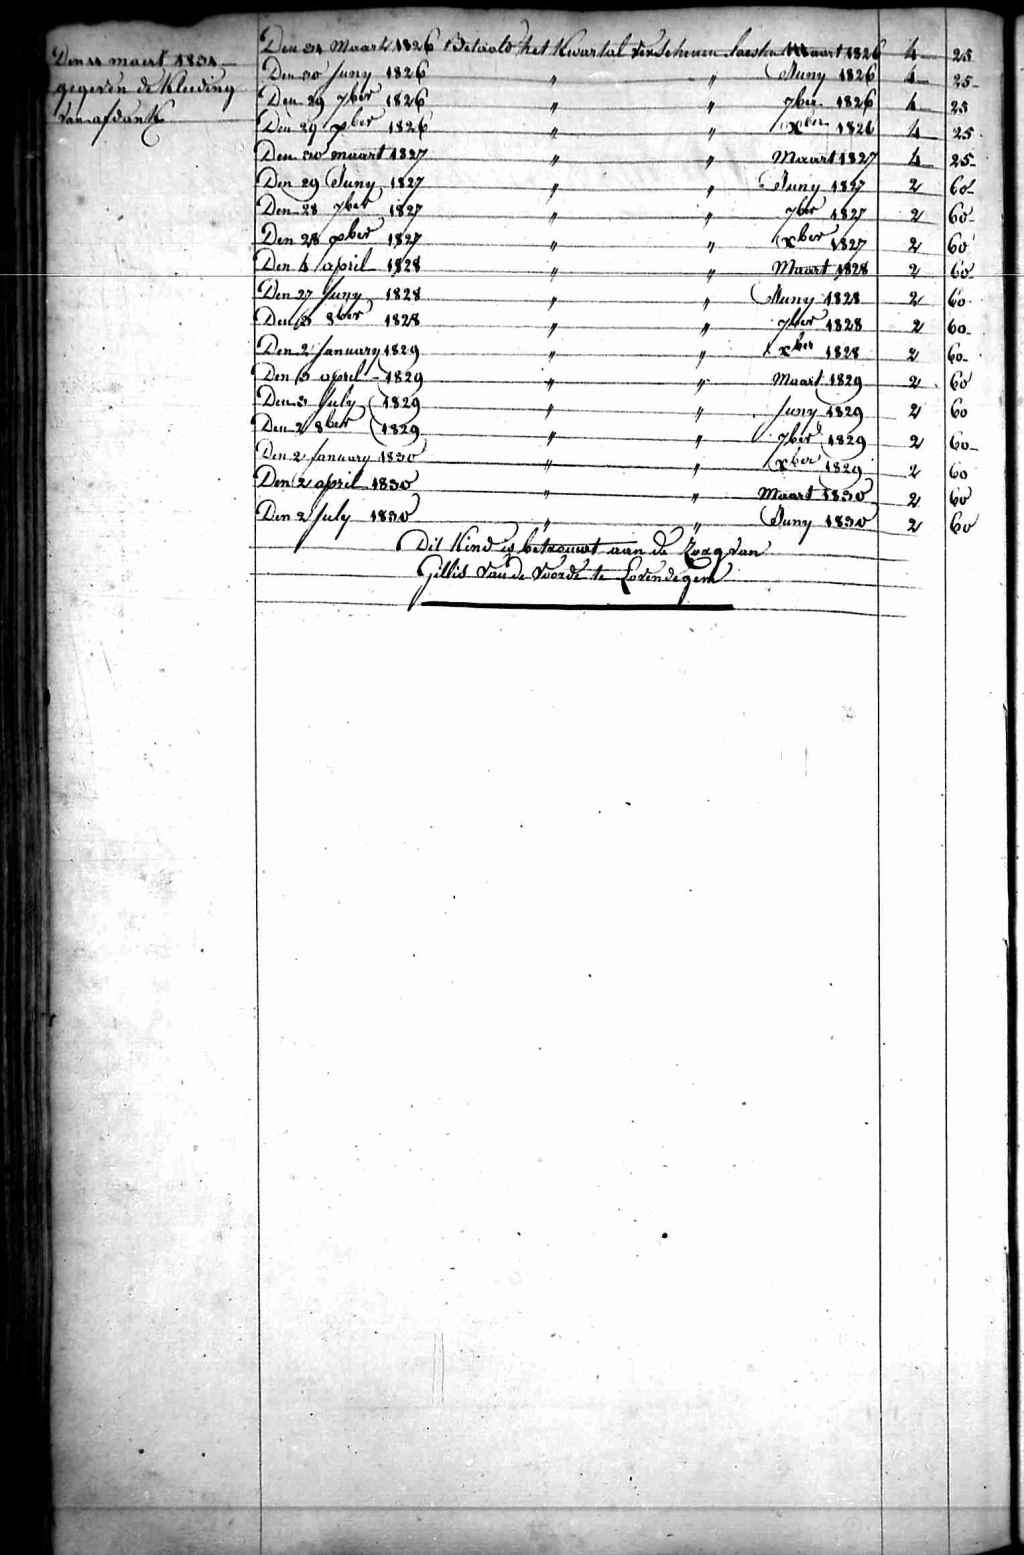 Den 11 maert 1831
gegeven de Kleeding
van afdank
Den 31 Maart 1826 Betaald het Kwartal verschenen laesten Maart 1826 4 25
Den 30 Juny 1826 " " Juny 1826 4 25
Den 29 7ber 1826 " " 7ber 1826 4 25
Den 29 xber 1826 " " xber 1826 4 25
Den 30 maart 1827 " " Maart 1827 4 25
Den 29 Juny 1827 " " Juny 1827 2 60
Den 28 7ber 1827 " " 7ber 1827 2 60
Den 28 xber 1827 " " xber 1827 2 60
Den 4 april 1828 " " Maart 1828 2 60
Den 27 Juny 1828 " " Juny 1828 2 60
Den 3 8ber 1828 " " 7ber 1828 2 60
Den 2 January 1829 " " xber 1828 2 60
Den 3 april 1829 " " Maart 1829 2 60
Den 3 July 1829 " " Juny 1829 2 60
Den 2 8ber 1829 " " 7ber 1829 2 60
Den 2 January 1830 " " xber 1829 2 60
Den 2 april 1830 " " Maart 1830 2 60
Den 2 July 1830 " " Juny 1830 2 60
Dit Kind is betrouwt aan de Zorg van
Gillis Van de Voorde te Lovendegem